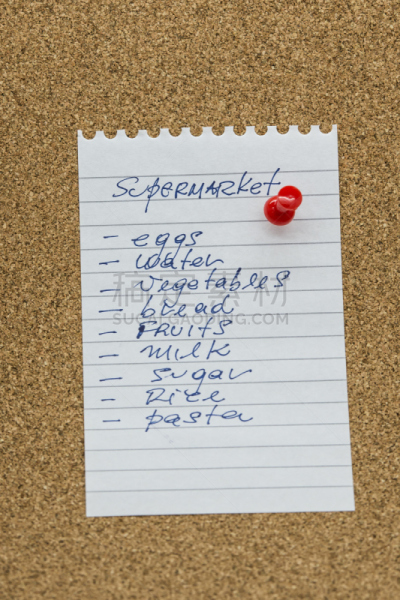 Supermarket
- eggs
- water
- vegetables
- bread
- FRUITS
- milk
- sugar
- Rice
- pasta
稿定素材
SUCAI.GAODING.COM